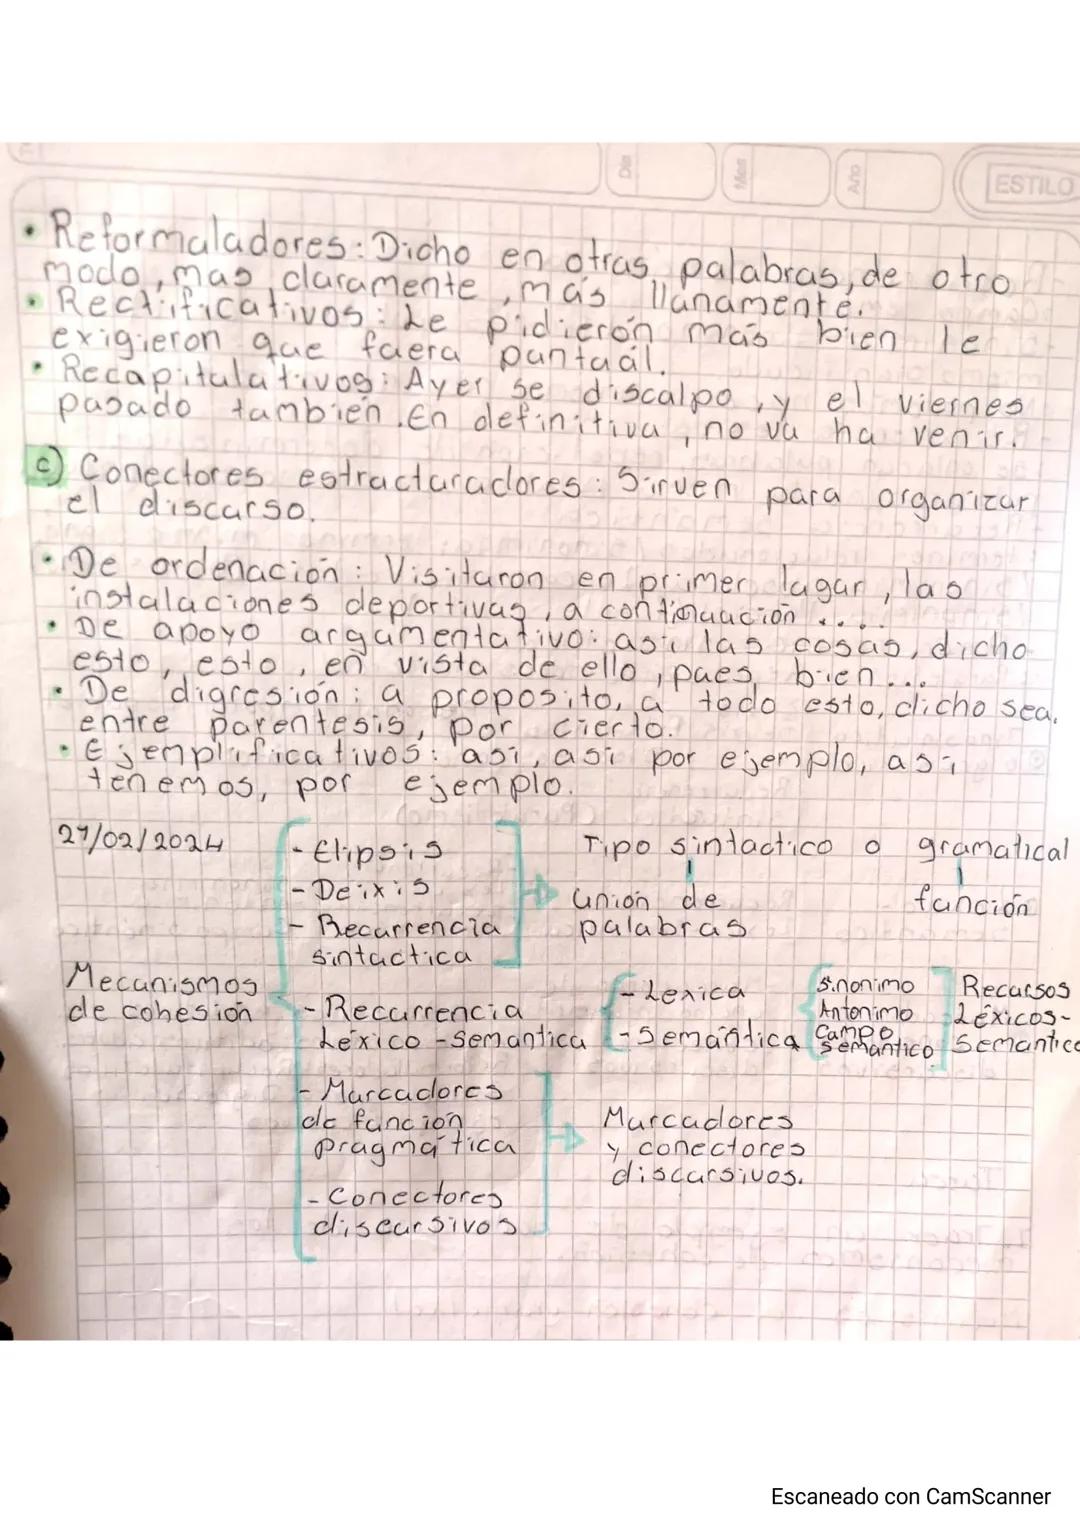 Dia Mes Año ESTILO
• Reformuladores: Dicho en otras palabras, de otro
modo, mas claramente, más llanamente.
• Rectificativos: Le pidierón más bien le
exigieron que fuera puntuál.
• Recapitulativos: Ayer se disculpo, y el viernes
pasado también. En definitiva, no va ha venir.
c) Conectores estructuradores: Sirven para organizar
el discurso.
• De ordenación: Visitaron en primer lugar, las
instalaciones deportivas, a continuación ....
• De apoyo argumentativo: así las cosas, dicho
esto, esto, en vista de ello, pues bien...
• De digresión: a proposito, a todo esto, dicho sea.
entre parentesis, por cierto.
• Ejemplificativos: así, así por ejemplo, así
tenemos, por ejemplo.
/02/2024
- Elipsis
- Deixis
- Recurrencia
sintactica
Tipo sintactico o gramatical
unión de
palabras
función
Mecanismos
de cohesión
- Recurrencia
Léxico - semantica
- Lexica
- Semántica
Sinonimo
Antonimo
Campo
semantico
Recursos
Léxicos-
semantico
- Marcadores
de función
pragmática
- Conectores
discursivos
Marcadores
y conectores
discursivos.
Escaneado con CamScanner